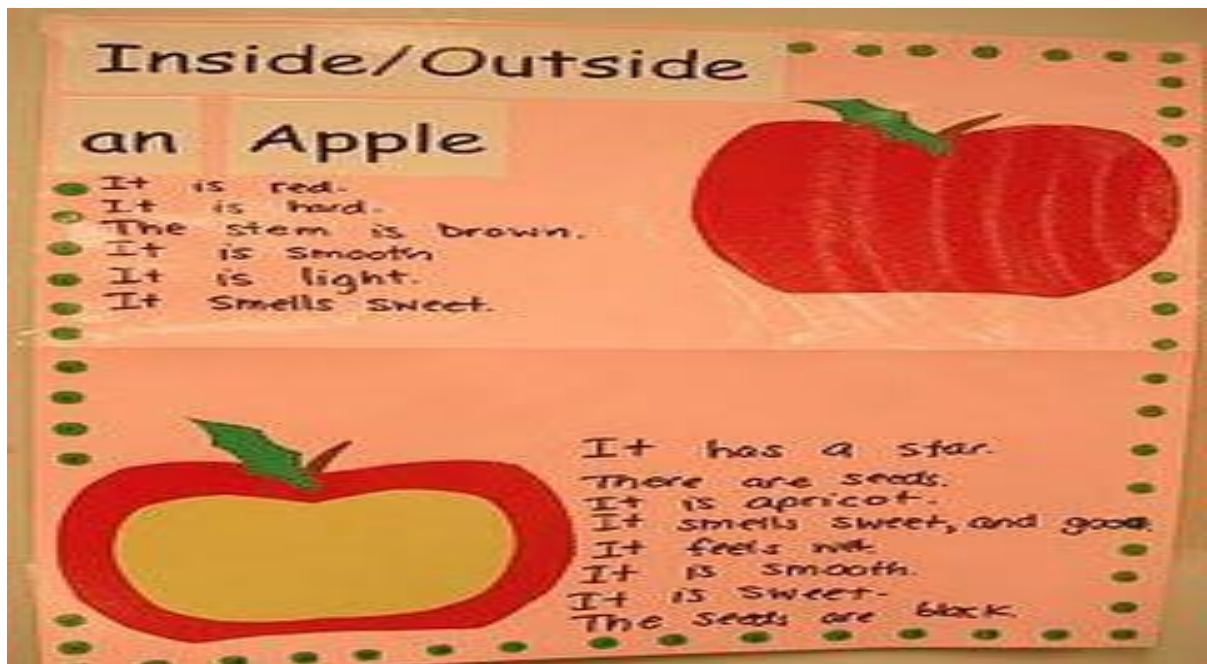 Inside/Outside
an Apple
It is red.
It is hard.
The stem is brown.
It is smooth
It is light.
It smells sweet.
It has a star.
There are seeds.
It is apricot.
It smells sweet, and good.
It feels wet.
It is smooth.
It is sweet.
The seeds are black.